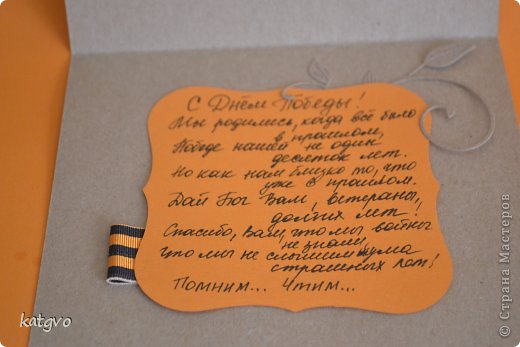 С Днём Победы!
Мы родились, когда всё было
в прошлом,
Победе нашей не один
десяток лет.
Но как нам близко то, что
уже в прошлом.
Дай Бог Вам, ветераны,
долгих лет!
Спасибо, Вам, что мы войны
не знаем,
что мы не слышим шума
страшных лет!
Помним... Чтим...
katgvo
© Страна Мастеров